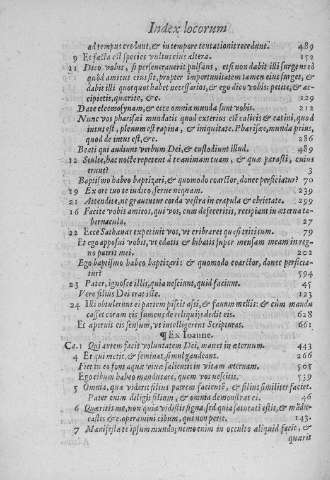 Index locorum
ad tempus credunt, & in tempore tentationis recedunt. 489
9 Et facta est species vultus eius altera. 152
11 Dico vobis, si perseverauerit pulsans, etsi non dabit illi surgens eo
quod amicus eius sit, propter importunitatem tamen eius surget, &
dabit illi quotquot habet necessarios, & ego dico vobis: petite, & ac-
cipietis, quærite, &c. 229
Date eleemosynam, & ecce omnia munda sunt vobis. 212
Nunc vos pharisæi mundatis quod exterius est calicis & catini, quod
intus est, plenum est rapina, & iniquitate. Pharisæe, munda prius,
quod de intus est, &c. 286
Beati qui audiunt verbum Dei, & custodiunt illud. 489
12 Stulte, hac nocte repetent à te animam tuam, & quæ parasti, cuius
erunt? 3
Baptismo habeo baptizari, & quomodo coarctor, donec perficiatur? 70
19 Ex ore tuo te iudico, serue nequam. 239
21 Attendite, ne grauentur corda vestra in crapula & ebrietate. 299
16 Facite vobis amicos, qui vos, cum defeceritis, recipiant in æterna ta-
bernacula. 27
22 Ecce Sathanas expetiuit vos, vt cribraret quasi triticum. 79
Et ego apposui vobis, vt edatis & bibatis super mensam meam in reg-
no patris mei. 202
Ego baptismo habeo baptizari: & quomodo coarctor, donec perficia-
tur? 594
23 Pater, ignosce illis, quia nesciunt, quid faciunt. 45
Vere filius Dei erat iste. 123
24 Illi obtulerunt ei partem piscis assi, & fauum mellis: & cum mandu
casset coram eis sumens de reliquijs dedit eis. 628
Et aperuit eis sensum, vt intelligerent Scripturas. 661
¶ Ex Ioanne.
Ca. 1 Qui autem facit voluntatem Dei, manet in æternum. 443
4 Et qui metit, & seminat, simul gaudeant. 266
Fiet in eo fons aquæ viuæ salientis in vitam æternam. 505
Ego cibum habeo manducare, quem vos nescitis. 539
5 Omnia, quæ videt filius patrem facientē, & filius similiter facit.
Pater enim diligit filium, & omnia demonstrat ei. 46
6 Quæritis me, non quia vidistis signa, sed quia saturati estis, & mādu-
castis &c. operamini cibum, qui non perit. 143.
7 Manifesta te ipsum mundo; nemo enim in occulto aliquid facit, &
quærit